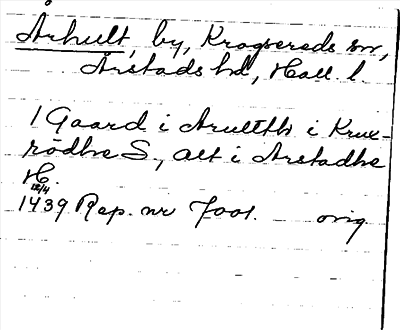 Århult, by, Krogsereds sn,
Årstads hd, Hall. l.
1 Gaard i Arultth i Krux-
rödhe S., alt i Arstadhe
H.
12/4
1439 Rep. nr 7001. orig